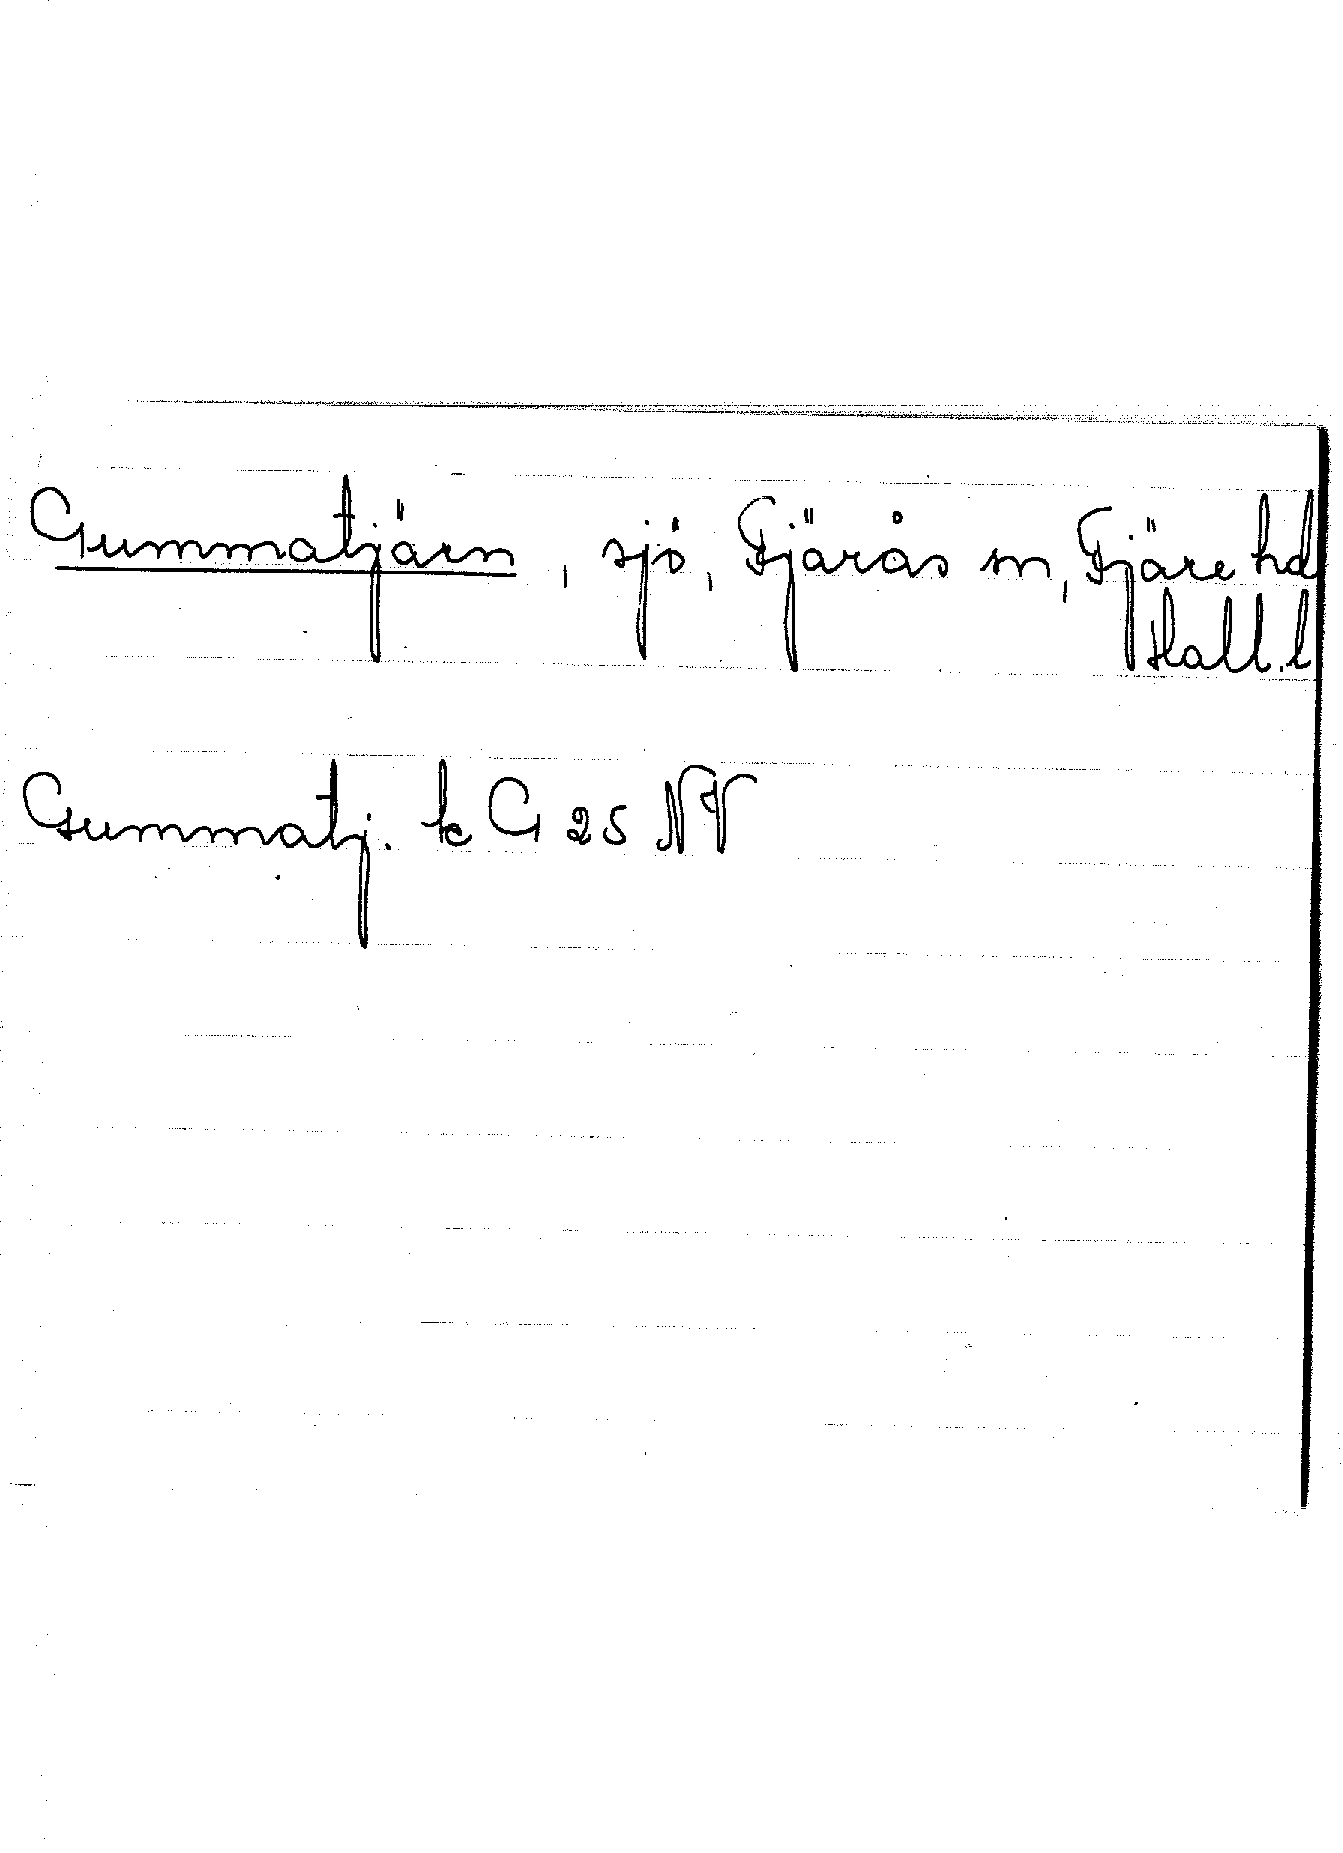 Gummatjärn, sjö, Fjärås sn, Fjäre hd
Hall. l
Gummatj. k G 25 NV